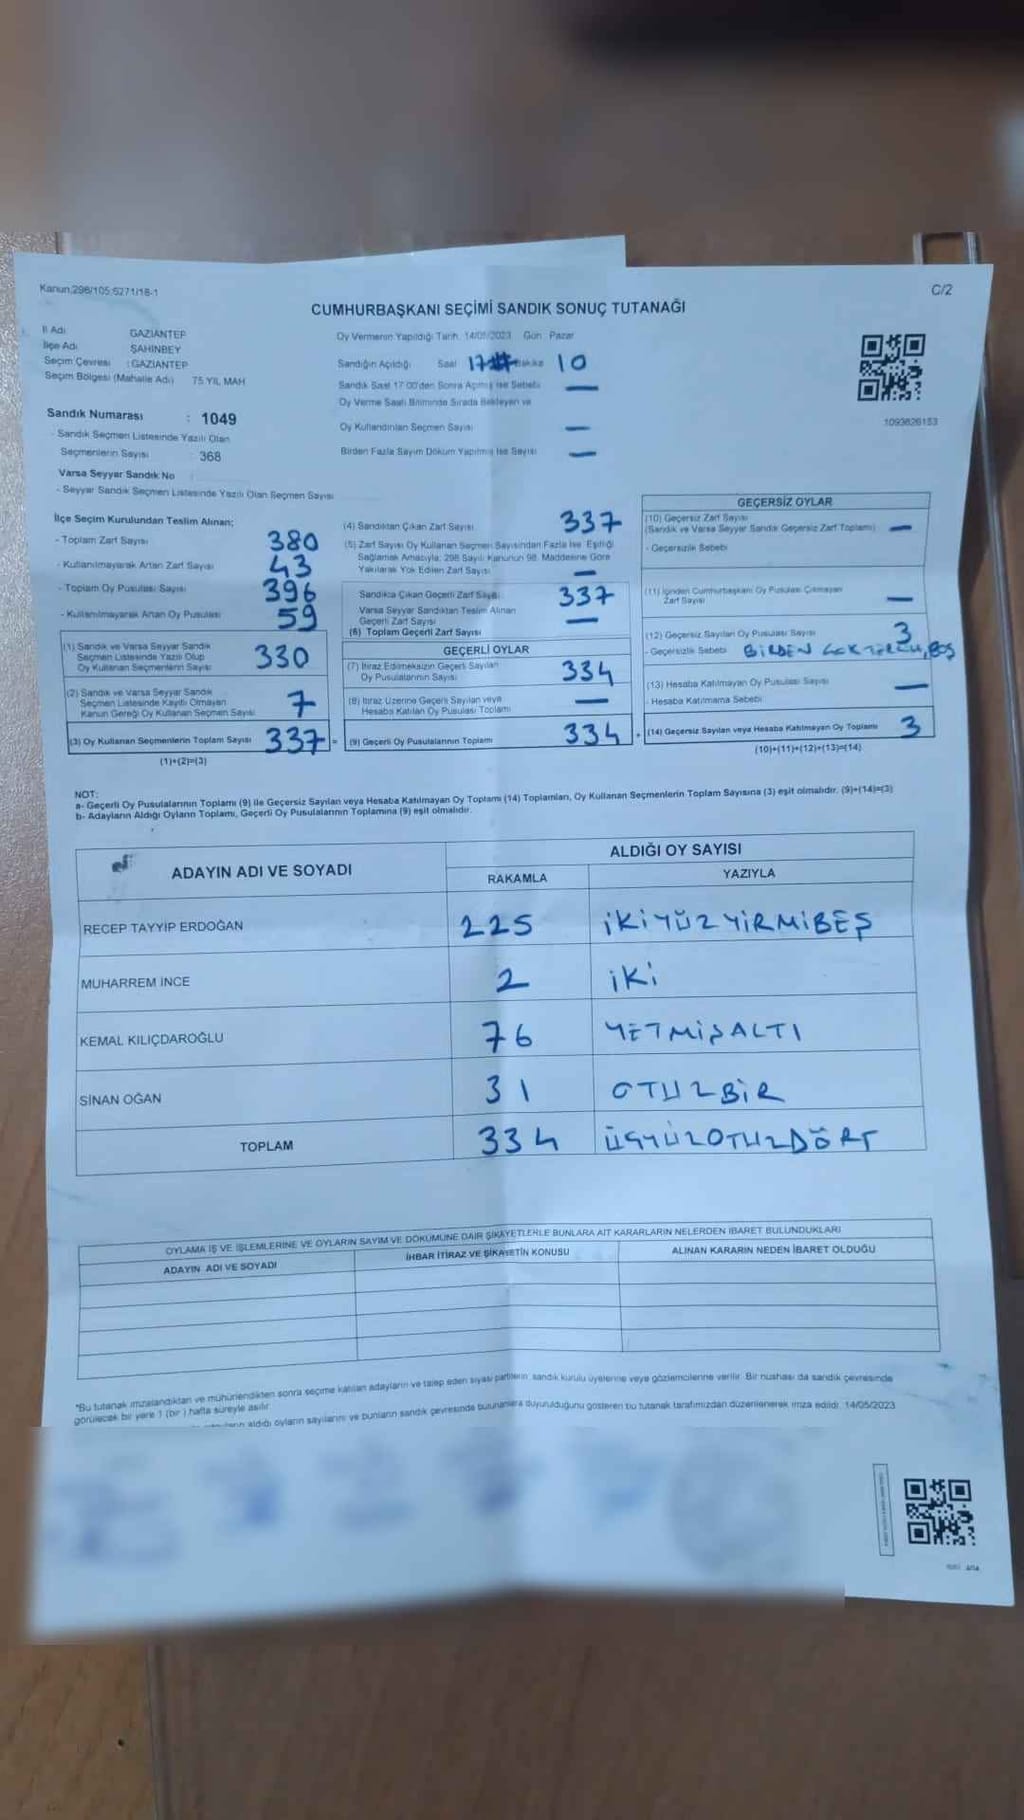 Kanun:298/105:6271/18-1
C/2
CUMHURBAŞKANI SEÇİMİ SANDIK SONUÇ TUTANAĞI
İl Adı GAZİANTEP
İlçe Adı ŞAHİNBEY
Seçim Çevresi : GAZİANTEP
Seçim Bölgesi (Mahalle Adı) 75 YIL MAH
Sandık Numarası : 1049
- Sandık Seçmen Listesinde Yazılı Olan
Seçmenlerin Sayısı : 368
Varsa Seyyar Sandık No
- Seyyar Sandık Seçmen Listesinde Yazılı Olan Seçmen Sayısı
Oy Vermenin Yapıldığı Tarih: 14/05/2023 Gün: Pazar
Sandığın Açıldığı Saat 17 Dakika 10
Sandık Saat 17:00'den Sonra Açılmış İse Sebebi —
Oy Verme Saati Bitiminde Sırada Bekleyen ve
Oy Kullandırılan Seçmen Sayısı —
Birden Fazla Sayım Döküm Yapılmış İse Sayısı —
1093626153
İlçe Seçim Kurulundan Teslim Alınan;
- Toplam Zarf Sayısı 380
- Kullanılmayarak Artan Zarf Sayısı 43
- Toplam Oy Pusulası Sayısı 396
- Kullanılmayarak Artan Oy Pusulası 59
(1) Sandık ve Varsa Seyyar Sandık
Seçmen Listesinde Yazılı Olup
Oy Kullanan Seçmenlerin Sayısı 330
(2) Sandık ve Varsa Seyyar Sandık
Seçmen Listesinde Kayıtlı Olmayan
Kanun Gereği Oy Kullanan Seçmen Sayısı 7
(3) Oy Kullanan Seçmenlerin Toplam Sayısı 337 =
(1)+(2)=(3)
(4) Sandıktan Çıkan Zarf Sayısı 337
(5) Zarf Sayısı Oy Kullanan Seçmen Sayısından Fazla İse, Eşitliği
Sağlamak Amacıyla, 298 Sayılı Kanunun 98. Maddesine Göre
Yakılarak Yok Edilen Zarf Sayısı —
Sandıkta Çıkan Geçerli Zarf Sayısı 337
Varsa Seyyar Sandıktan Teslim Alınan
Geçerli Zarf Sayısı —
(6) Toplam Geçerli Zarf Sayısı
GEÇERLİ OYLAR
(7) İtiraz Edilmeksizin Geçerli Sayılan
Oy Pusulalarının Sayısı 334
(8) İtiraz Üzerine Geçerli Sayılan veya
Hesaba Katılan Oy Pusulası Toplamı —
(9) Geçerli Oy Pusulalarının Toplamı 334 +
GEÇERSİZ OYLAR
(10) Geçersiz Zarf Sayısı
(Sandık ve Varsa Seyyar Sandık Geçersiz Zarf Toplamı) —
- Geçersizlik Sebebi
(11) İçinden Cumhurbaşkanı Oy Pusulası Çıkmayan
Zarf Sayısı —
(12) Geçersiz Sayılan Oy Pusulası Sayısı 3
- Geçersizlik Sebebi BİRDEN ÇOK TERCİH, BOŞ
(13) Hesaba Katılmayan Oy Pusulası Sayısı —
- Hesaba Katılmama Sebebi
(14) Geçersiz Sayılan veya Hesaba Katılmayan Oy Toplamı 3
(10)+(11)+(12)+(13)=(14)
NOT:
a- Geçerli Oy Pusulalarının Toplamı (9) ile Geçersiz Sayılan veya Hesaba Katılmayan Oy Toplamı (14) Toplamları, Oy Kullanan Seçmenlerin Toplam Sayısına (3) eşit olmalıdır. (9)+(14)=(3)
b- Adayların Aldığı Oyların Toplamı, Geçerli Oy Pusulalarının Toplamına (9) eşit olmalıdır.
ADAYIN ADI VE SOYADI
ALDIĞI OY SAYISI
RAKAMLA YAZIYLA
RECEP TAYYİP ERDOĞAN 225 İKİYÜZYİRMİBEŞ
MUHARREM İNCE 2 İKİ
KEMAL KILIÇDAROĞLU 76 YETMİŞALTI
SİNAN OĞAN 31 OTUZBİR
TOPLAM 334 ÜÇYÜZOTUZDÖRT
OYLAMA İŞ VE İŞLEMLERİNE VE OYLARIN SAYIM VE DÖKÜMÜNE DAİR ŞİKAYETLERLE BUNLARA AİT KARARLARIN NELERDEN İBARET BULUNDUKLARI
ADAYIN ADI VE SOYADI İHBAR İTİRAZ VE ŞİKAYETİN KONUSU ALINAN KARARIN NEDEN İBARET OLDUĞU
*Bu tutanak imzalandıktan ve mühürlendikten sonra seçime katılan adayların ve talep eden siyasi partilerin, sandık kurulu üyelerine veya gözlemcilerine verilir. Bir nushası da sandık çevresinde
görülecek bir yere 1 (bir) hafta süreyle asılır.
aldığı oyların sayılarını ve bunların sandık çevresinde bulunanlara duyurulduğunu gösteren bu tutanak tarafımızdan düzenlenerek imza edildi. 14/05/2023